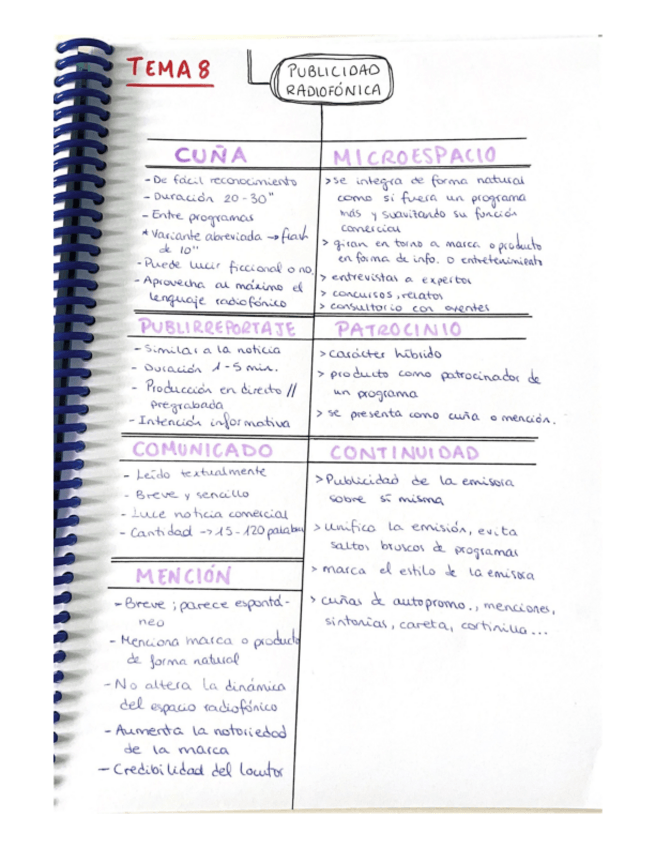 TEMA 8
PUBLICIDAD
RADIOFÓNICA
CUÑA
- De fácil reconocimiento
- Duración 20-30"
- Entre programas
* Variante abreviada → flash
de 10"
- Puede lucir ficcional o no.
- Aprovecha al máximo el
lenguaje radiofónico
MICROESPACIO
> se integra de forma natural
como si fuera un programa
más y suavizando su función
comercial
> giran en torno a marca o producto
en forma de info. o entretenimiento
> entrevistas a expertos
> concursos, relatos
> consultorio con oyentes
PUBLIRREPORTAJE
- Similar a la noticia
- Duración 1-5 min.
- Producción en directo //
pregrabada
- Intención informativa
PATROCINIO
> carácter híbrido
> producto como patrocinador de
un programa
> se presenta como cuña o mención.
COMUNICADO
- Leído textualmente
- Breve y sencillo
- Luce noticia comercial
- Cantidad -> 15-120 palabras
CONTINUIDAD
> Publicidad de la emisora
sobre sí misma
> unifica la emisión, evita
saltos bruscos de programas
> marca el estilo de la emisora
> cuñas de autopromo., menciones,
sintonías, careta, cortinilla...
MENCIÓN
- Breve; parece espontá-
neo
- Menciona marca o producto
de forma natural
- No altera la dinámica
del espacio radiofónico
- Aumenta la notoriedad
de la marca
- Credibilidad del locutor